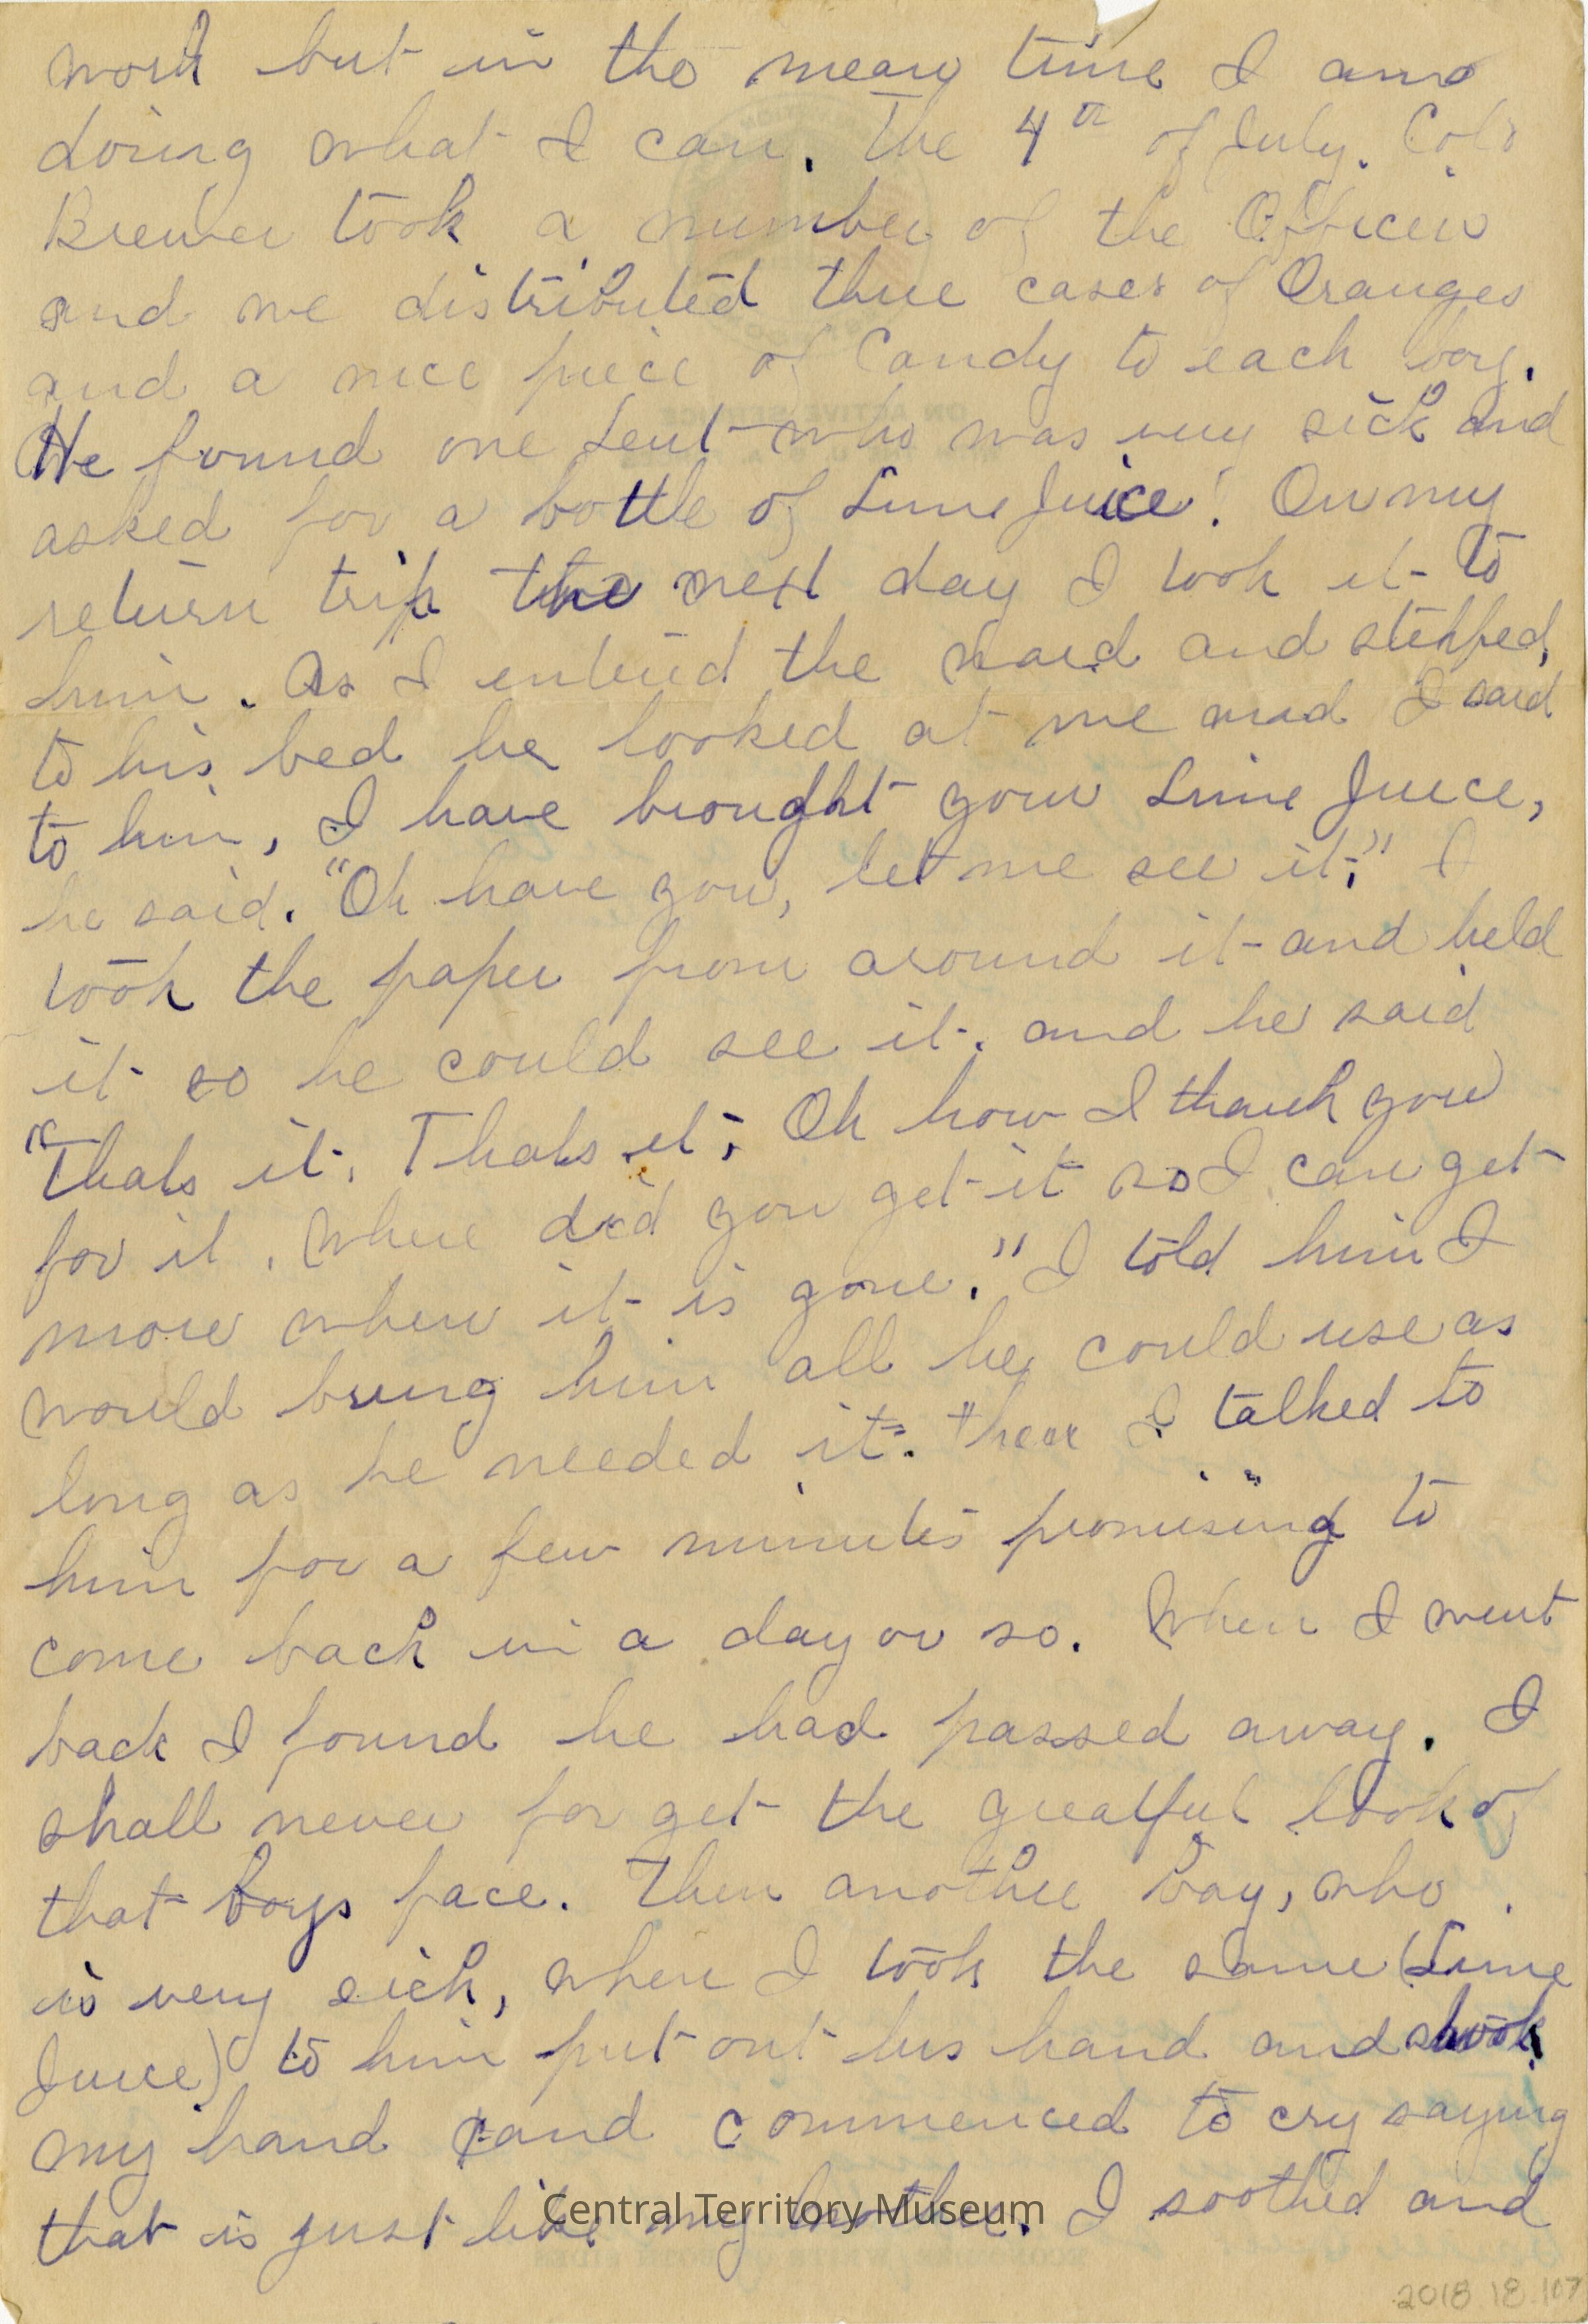 work but in the mean time I am
doing what I can. The 4th of July. Col.
Brewer took a number of the Officers
and we distributed three cases of Oranges
and a nice piece of Candy to each boy.
He found one Leut who was very sick and
asked for a bottle of Lime Juice! On my
return trip the next day I took it to
him. As I entered the ward and stepped
to his bed he looked at me and I said
to him, I have brought your Lime Juice,
he said. "Oh have you, let me see it;" I
took the paper from around it and held
it so he could see it. and he said
"Thats it, Thats it; Oh how I thank you
for it. Where did you get it so I can get
more when it is gone." I told him I
would bring him all he could use as
long as he needed it. then I talked to
him for a few minutes promising to
come back in a day or so. When I went
back I found he had passed away. I
shall never forget the greatful look of
that boys face. Then another boy, who
is very sick, when I took the same (Lime
Juice) to him put out his hand and shook
my hand and commenced to cry saying
that is just like my mother. I soothed and
Central Territory Museum
2018.18.107